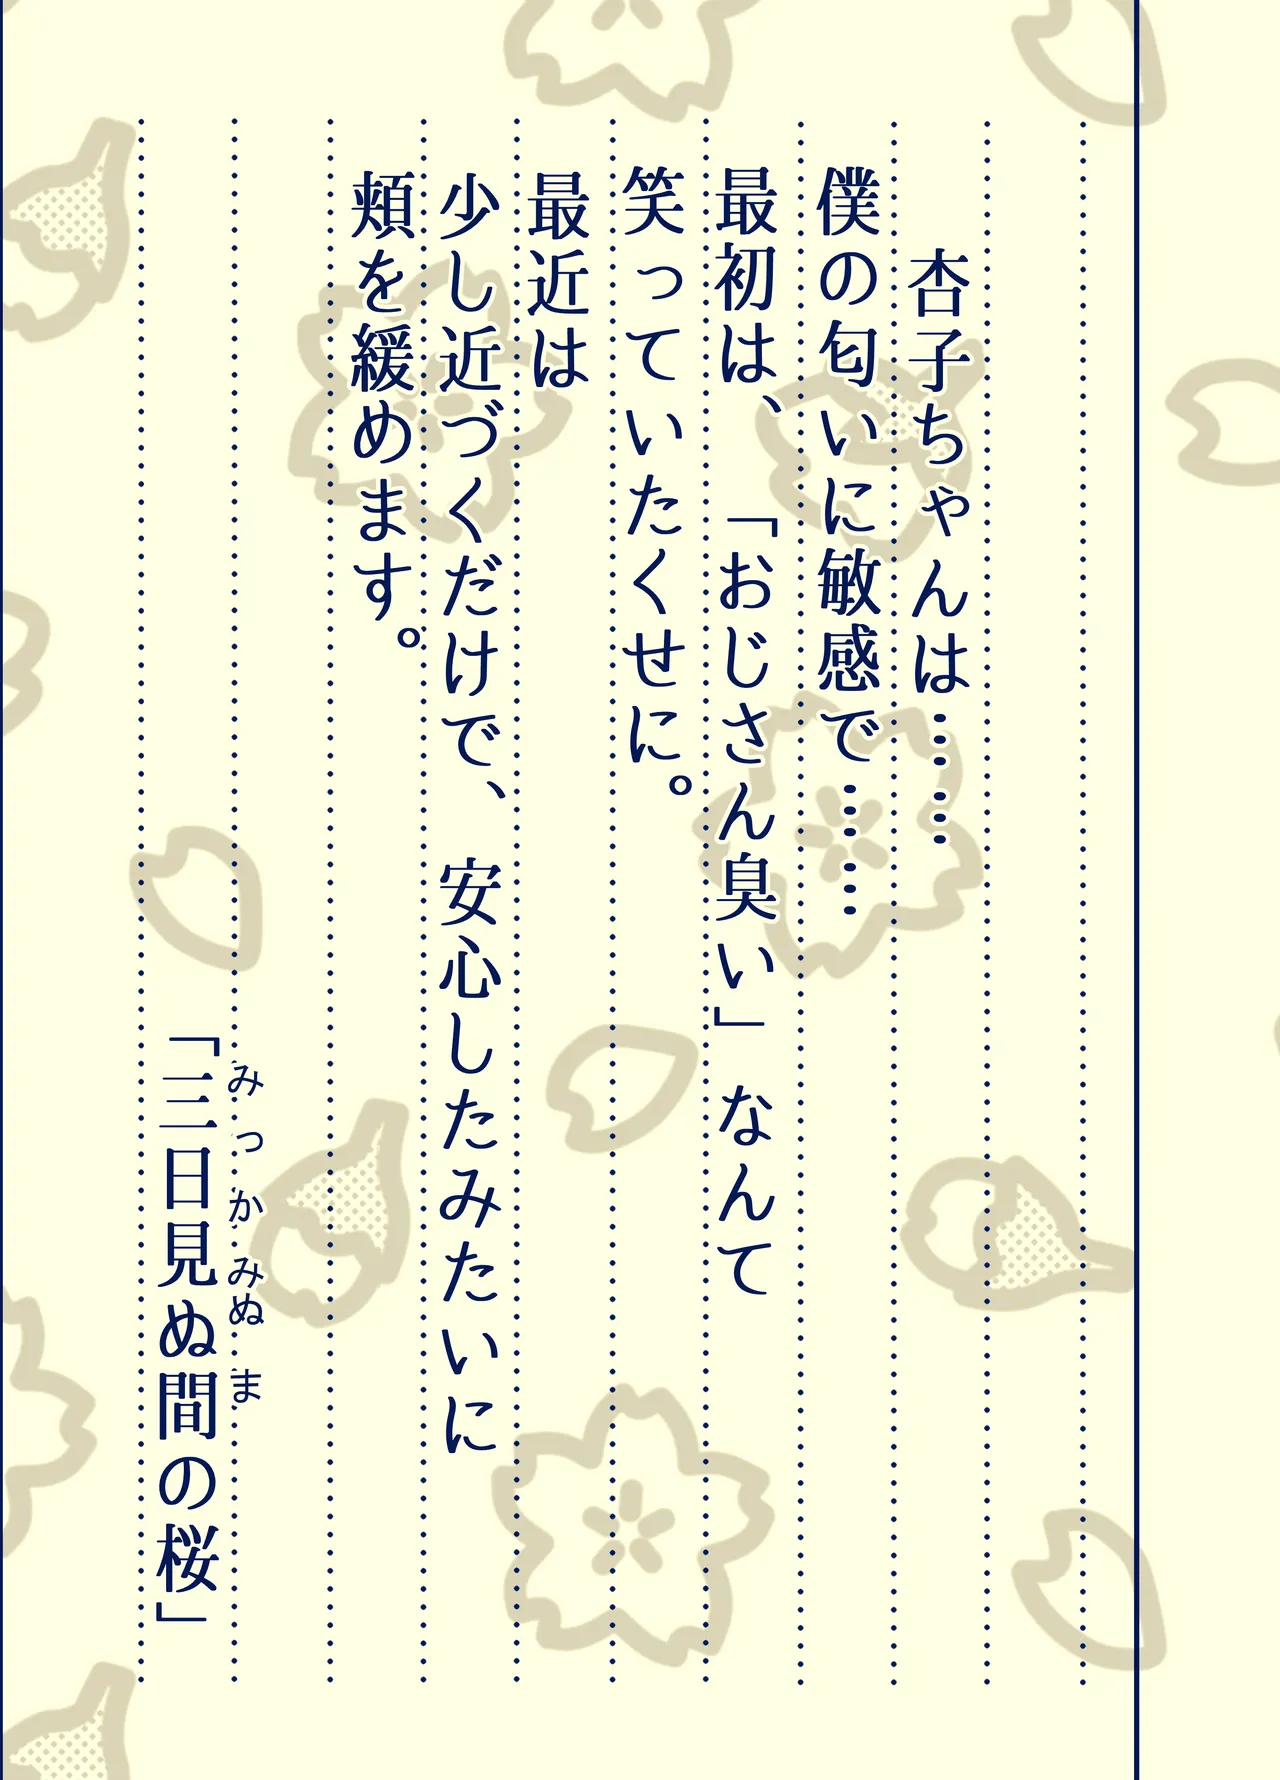 杏子ちゃんは……
僕の匂いに敏感で……
最初は、「おじさん臭い」なんて
笑っていたくせに。
最近は
少し近づくだけで、安心したみたいに
頬を緩めます。
みっかみぬま
「三日見ぬ間の桜」